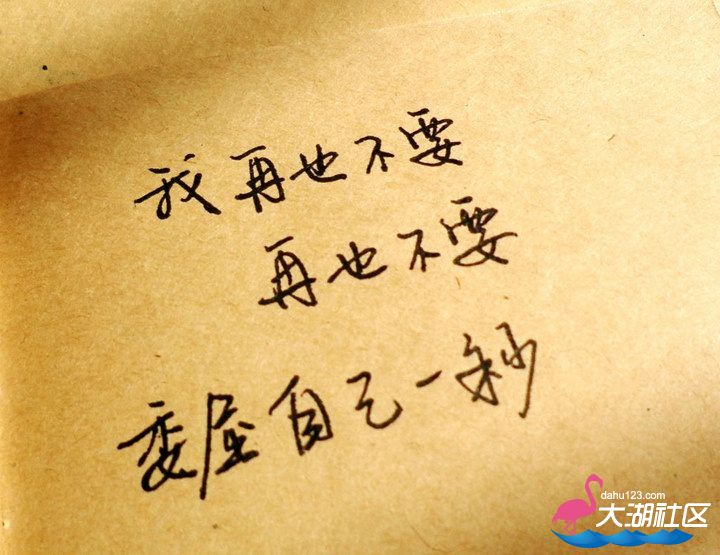 我再也不要
再也不要
委屈自己一秒
dahu123.com
大湖社区